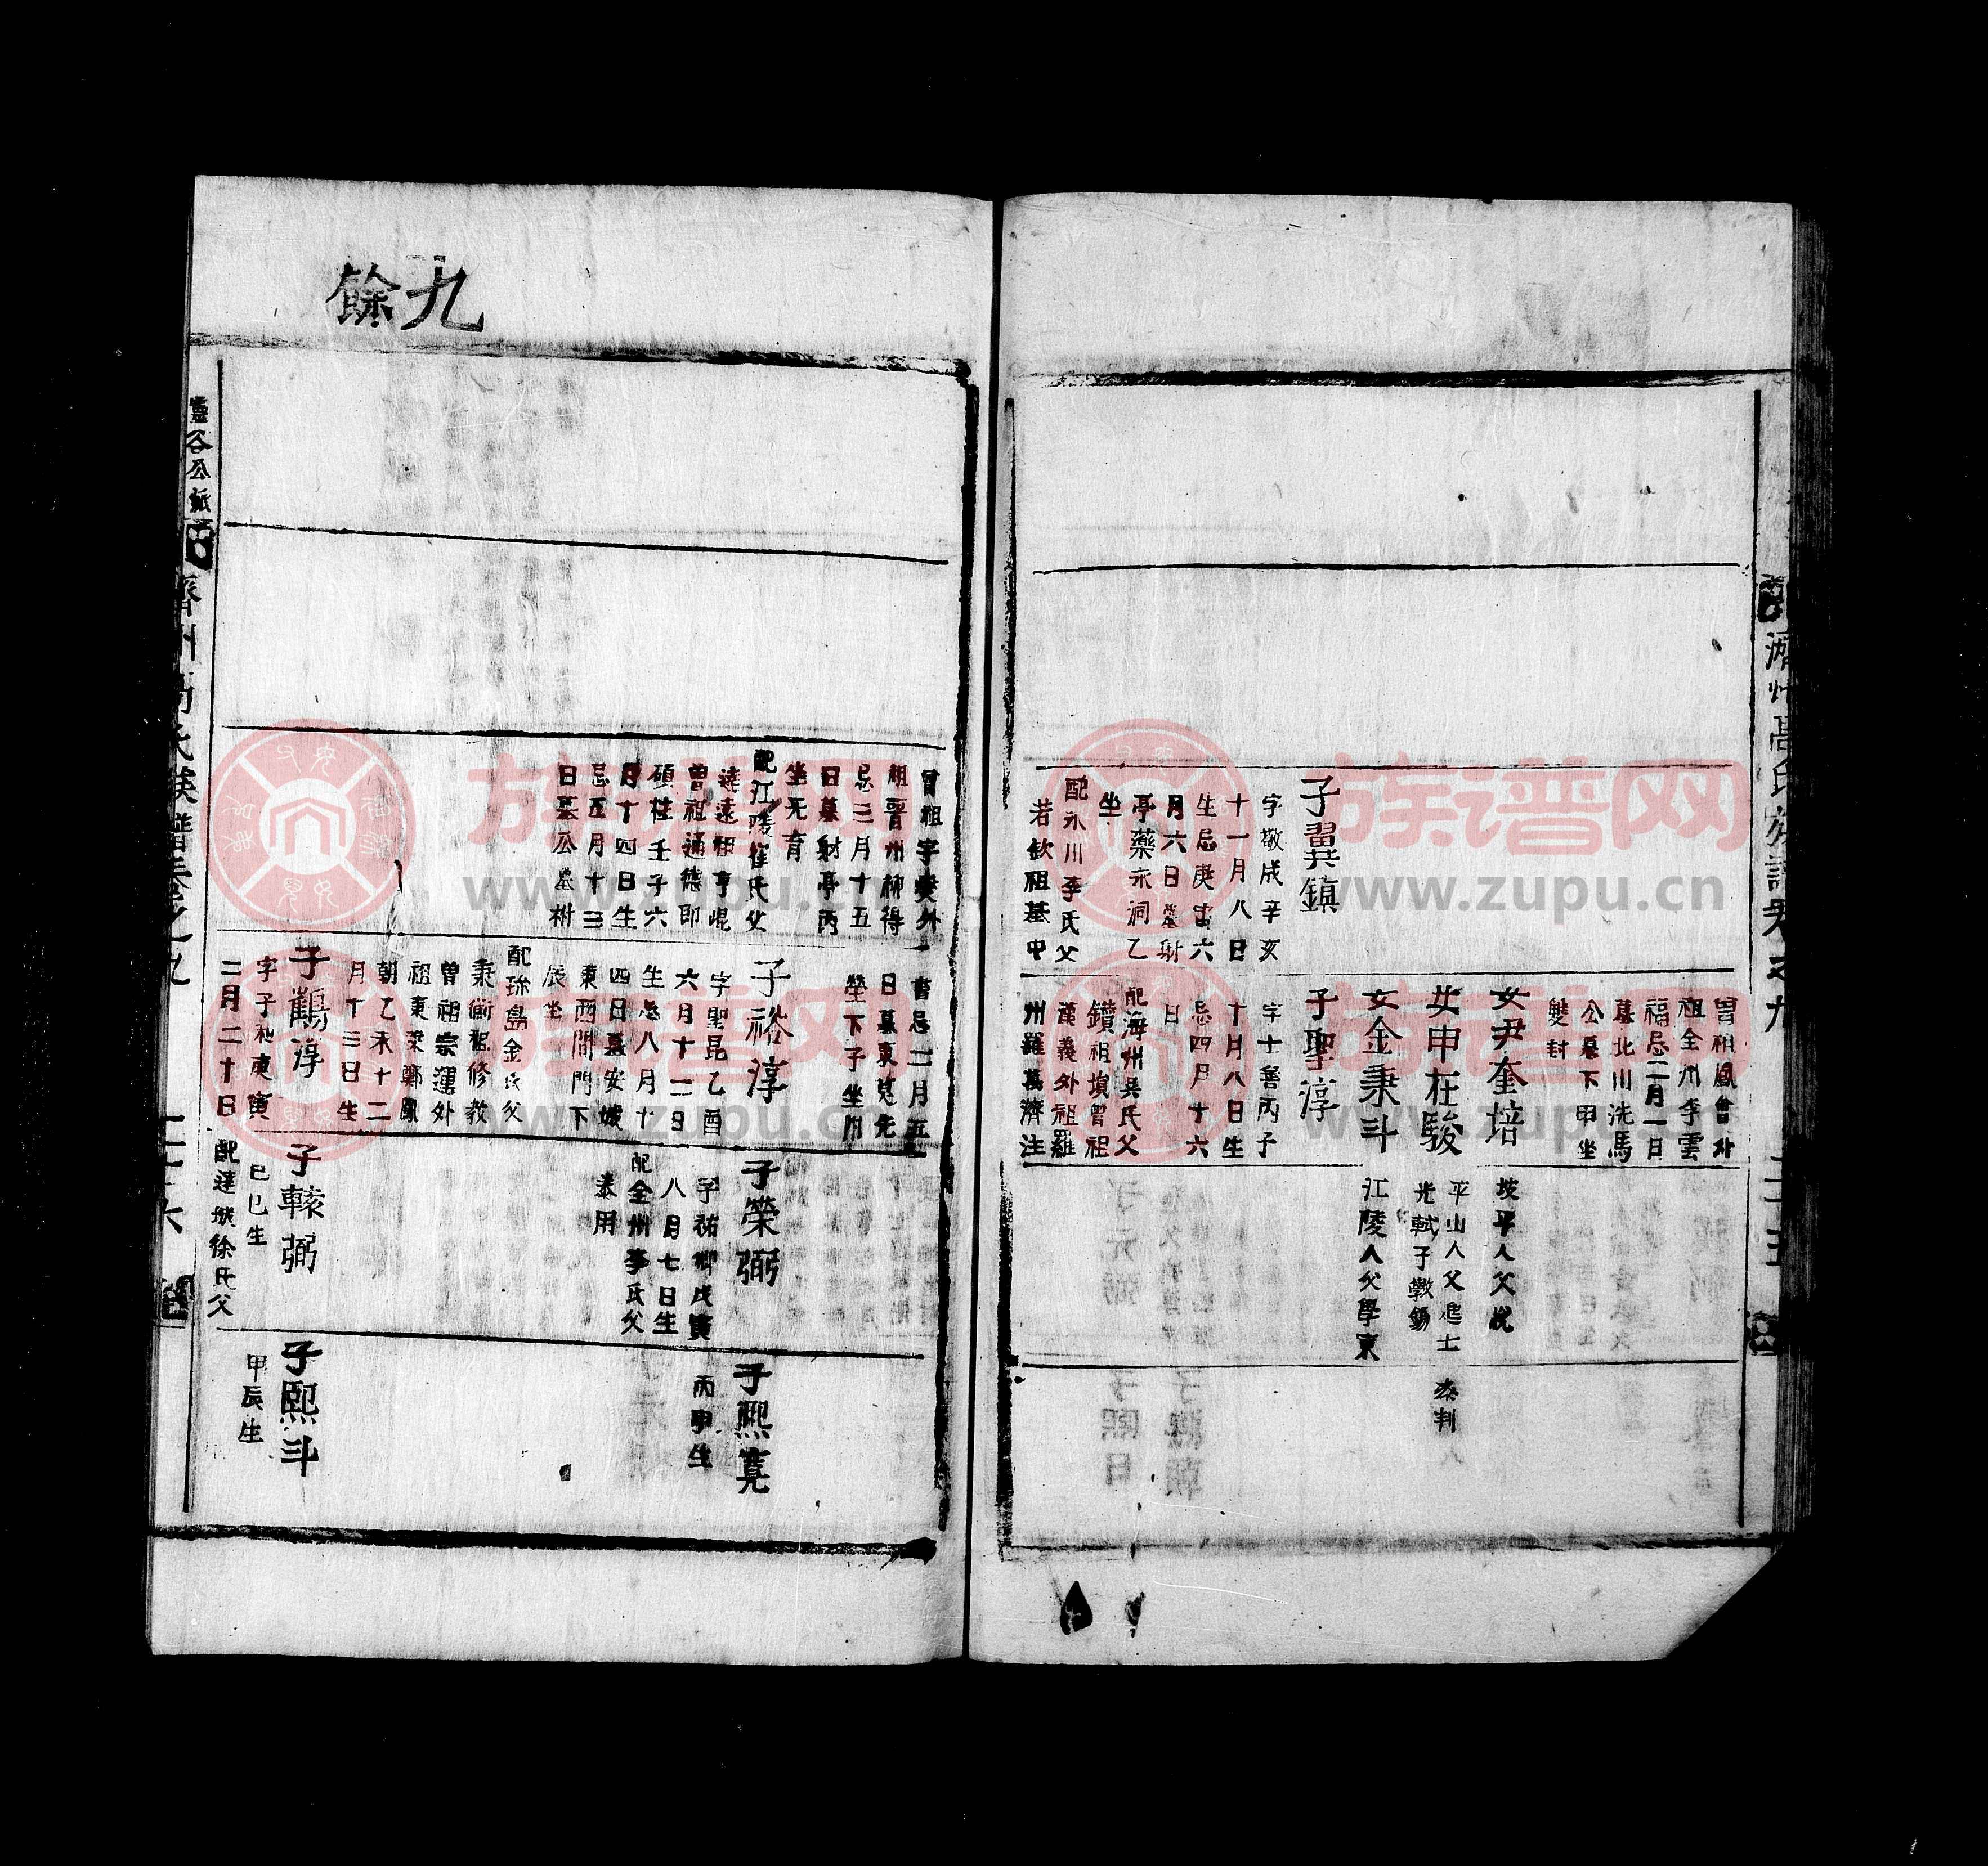 濟州高氏族譜卷之九
二十五
子翼鎮
字敬成辛亥
十一月八日
生忌庚寅六
月六日墓射
亭藥水洞乙
坐
配永川李氏父
若欽祖基中
曾祖鳳會外
祖全州李雲
福忌二月一日
墓北川洗馬
公墓下甲坐
雙封
女尹奎培
女申在駿
女金秉斗
子聖淳
字士善丙子
十月八日生
忌四月十六
日
配海州吳氏父
鑽祖塡曾祖
漢義外祖羅
州羅萬濟注
坡平人父悅
平山人父進士
光軾子斅錫
江陵人父學東
泰判
九餘
曾祖宇奕外
祖晋州柳得
忌三月十五
日墓射亭丙
坐无育
配江陵崔氏父
遠遠祖亨焜
曾祖通德郎
碩柱壬子六
月十四日生
忌五月十三
日墓公墓祔
書忌二月五
日墓東苑先
塋下子坐
子裕淳
字聖昆乙酉
六月十二日
生忌八月十
四日墓安坡
東西間門下
辰坐
配珎島金氏父
秉衡祖修教
曾祖宗運外
祖東萊鄭鳳
朝乙未十二
月十三日生
子鶴淳
字子和庚寅
二月二十日
子榮弼
字祐卿戊寅
八月七日生
配全州李氏父
泰用
子輆弼
己巳生
配達城徐氏父
子熙寬
丙申生
子熙斗
甲辰生
靈谷公派
濟州高氏族譜卷之九
二十六
族谱网
www.zupu.cn
族谱网
www.zupu.cn
族谱网
www.zupu.cn
族谱网
www.zupu.cn